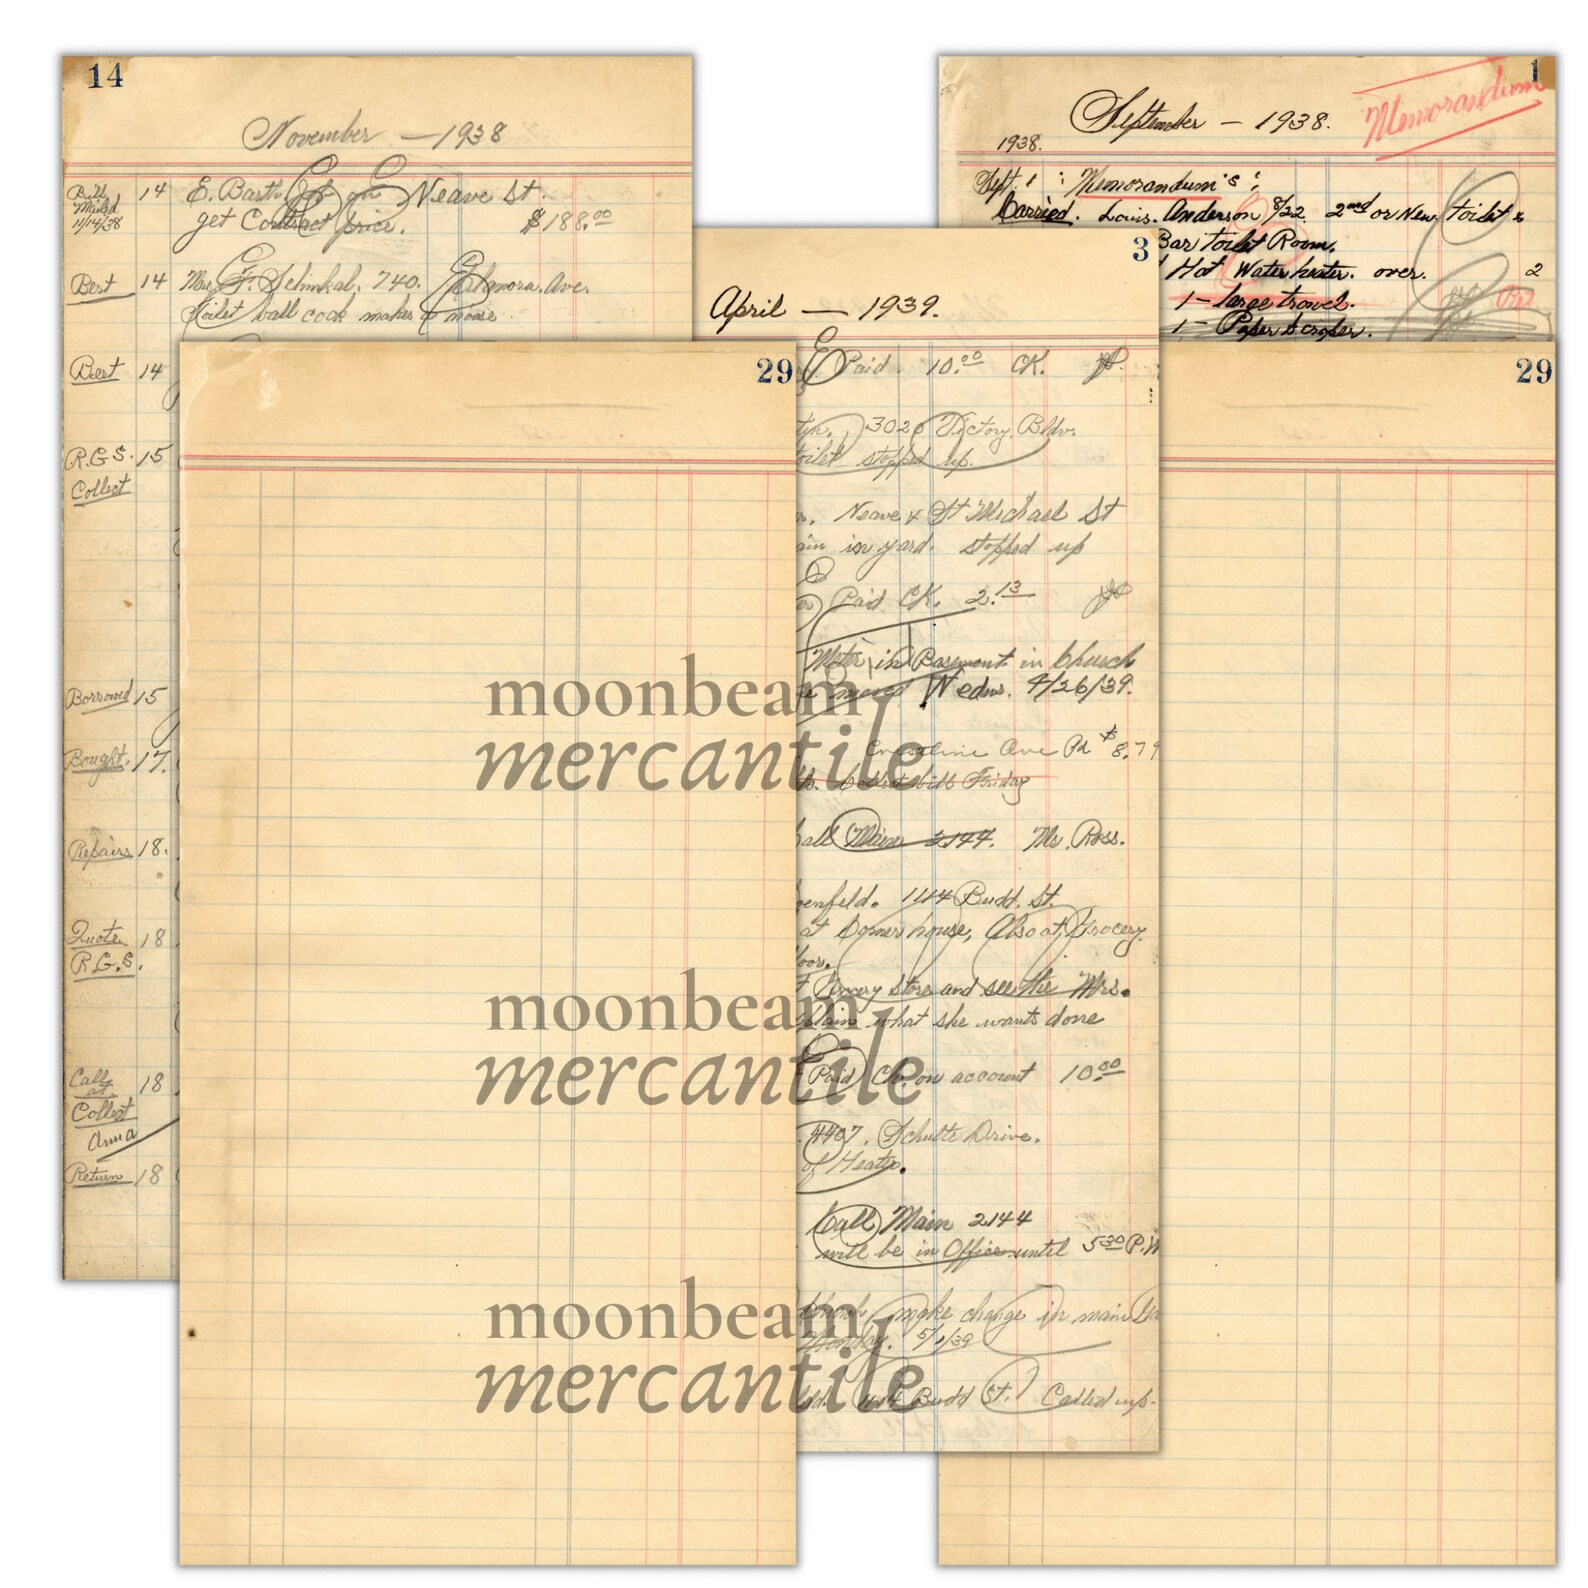 14
November — 1938
Bill
Mail'd
11/14/38
14 E. Barth Job on Neave St.
get Contract price. $188.00
Best 14 Mrs. F. Schinkal. 740. Elenora. Ave.
Toilet ball cock makes a noise.
Best 14
R.G.S. 15
Collect
Borrowed 15
Bought. 17.
Repairs 18.
Quote 18
R.G.S.
Call 18
at
Collect
Return 18
1
Memorandum
September — 1938.
1938.
Sept. 1 : Memorandum's ;
Carried. Louis. Anderson 8/22 2nd or New toilet &
Bar toilet Room.
1 Hot Water heater. over. 2
1 - large trowel.
1 - Paper Scraper.
3
April — 1939.
Paid 10.00 CK.
3020 Victory. Bldv.
toilet stopped up.
Neave & St Michael St
in yard. stopped up
Paid CK. 2.13
Meter in Basement in Church
moved Wedns. 4/26/39.
Ave Pd $8.79
Collect bill Friday
Call Main 2144. Mr. Ross.
1114 Budd. St.
at Corner house, Also at Grocery
Grocery store and see the Mrs.
what she wants done
Paid Ck. on account 10.00
4407. Schulte Drive.
of Heater.
Call Main 2144
will be in Office until 5:30 P.M
make change in main
Monday. 5/1/39
Budd St. Called up.
29
29
moonbeam
mercantile
moonbeam
mercantile
moonbeam
mercantile